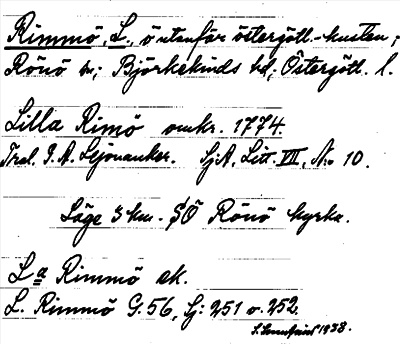 Rimmö, L., ö utanför östergötl.-kusten;
Rönö sn; Björkekinds hd; Östergötl. l.
Lilla Rimö omkr. 1774.
Tral. P. A. Lejonanker. SjA, Litt. VII, No 10.
Läge 3 km. SÖ Rönö kyrka.
La Rimmö ek.
L. Rimmö G: 56, Sj: 251 o. 252.
1938.